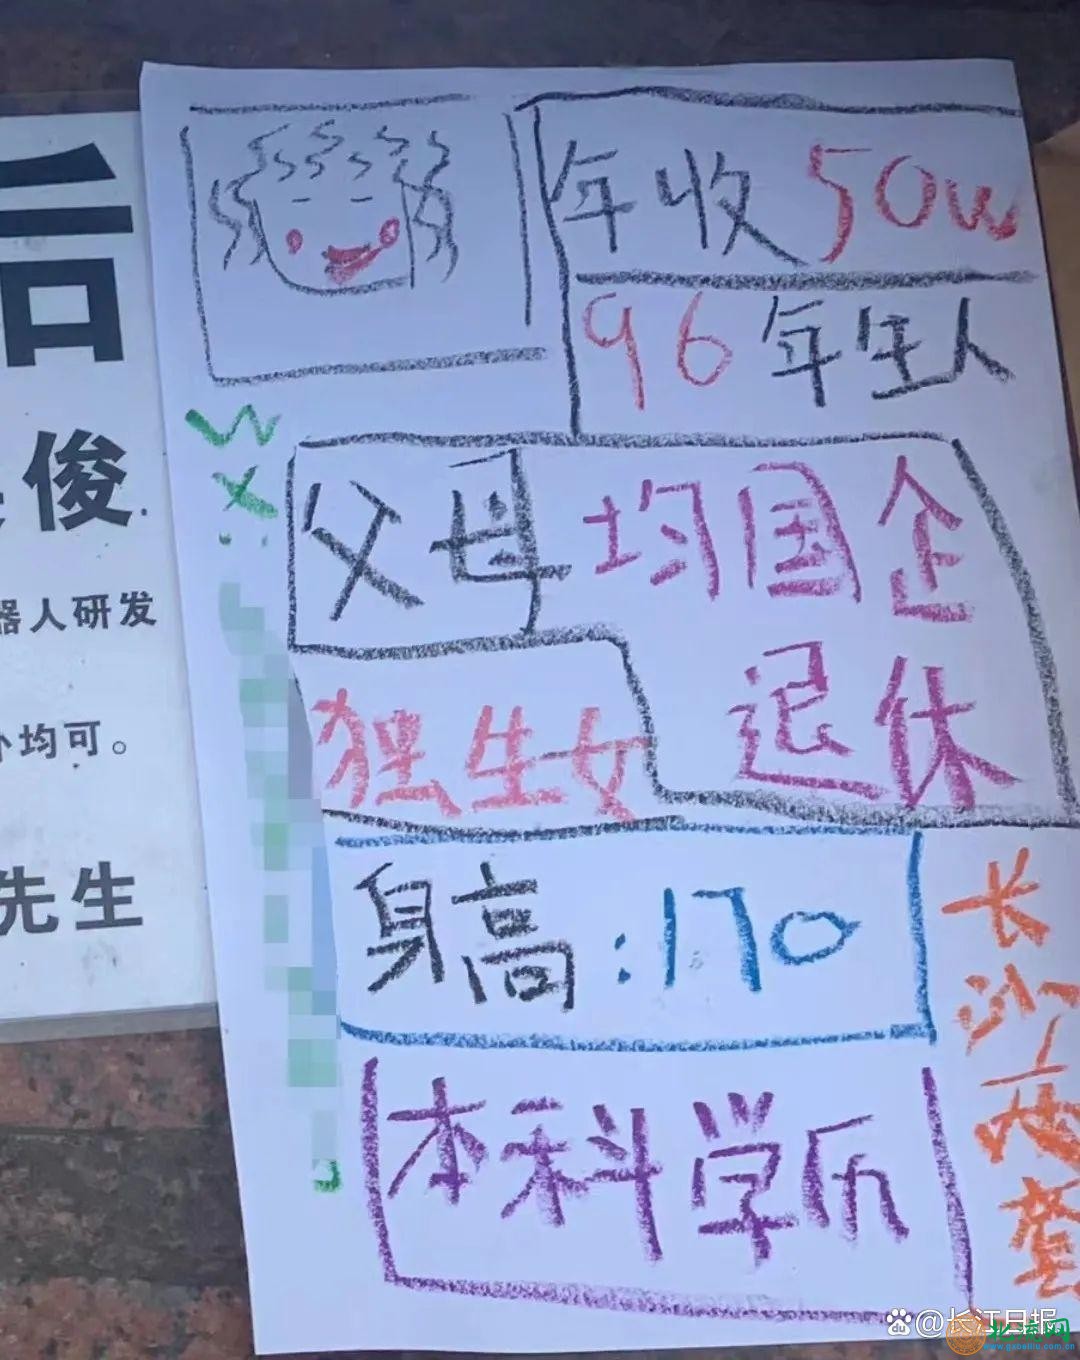 后
俊.
器人研发
均可。
先生
年收50w
96年生人
WX:
父母均国企
退休
独生女
身高:170
本科学历
长沙两套
@长江日报